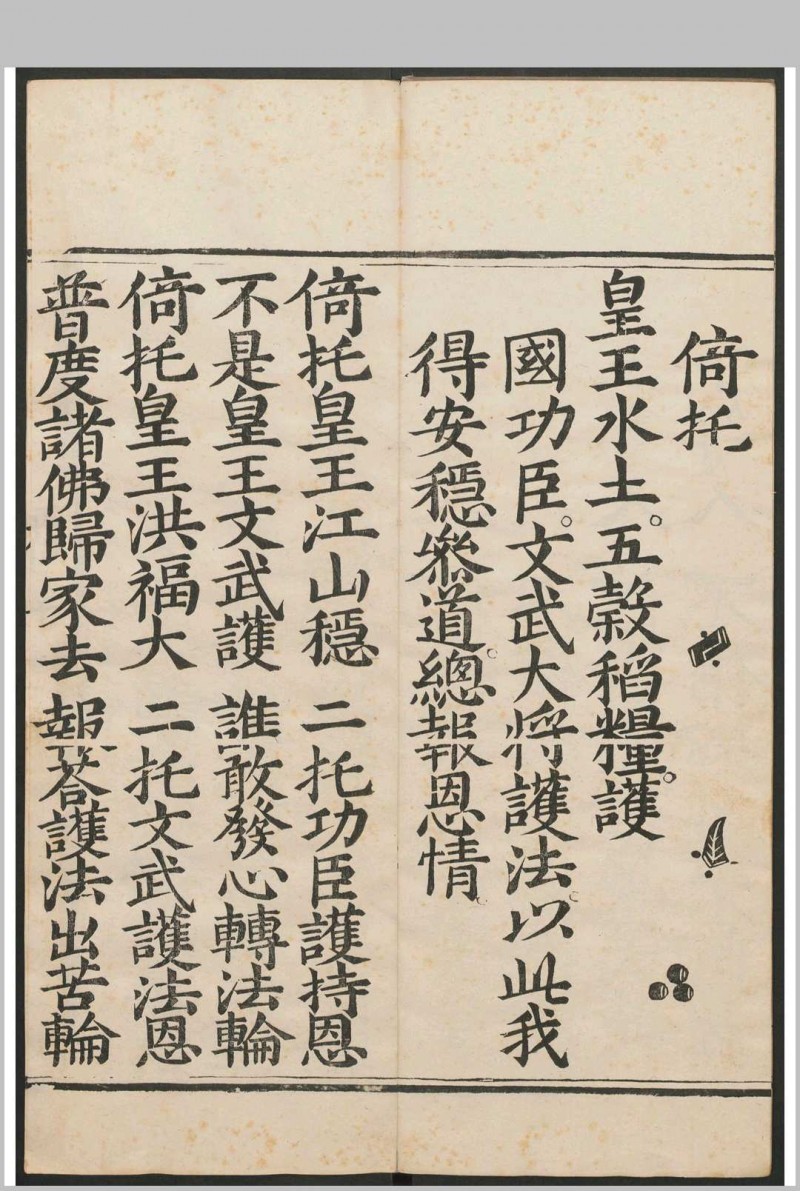 倚托
皇王水土。五穀稻糧。護
國功臣。文武大將護法。以此我
得安穩。叅道。總報恩情。
倚托皇王江山穩 二托功臣護持恩
不是皇王文武護 誰敢發心轉法輪
倚托皇王洪福大 二托文武護法恩
普度諸佛歸家去 報荅護法出苦輪